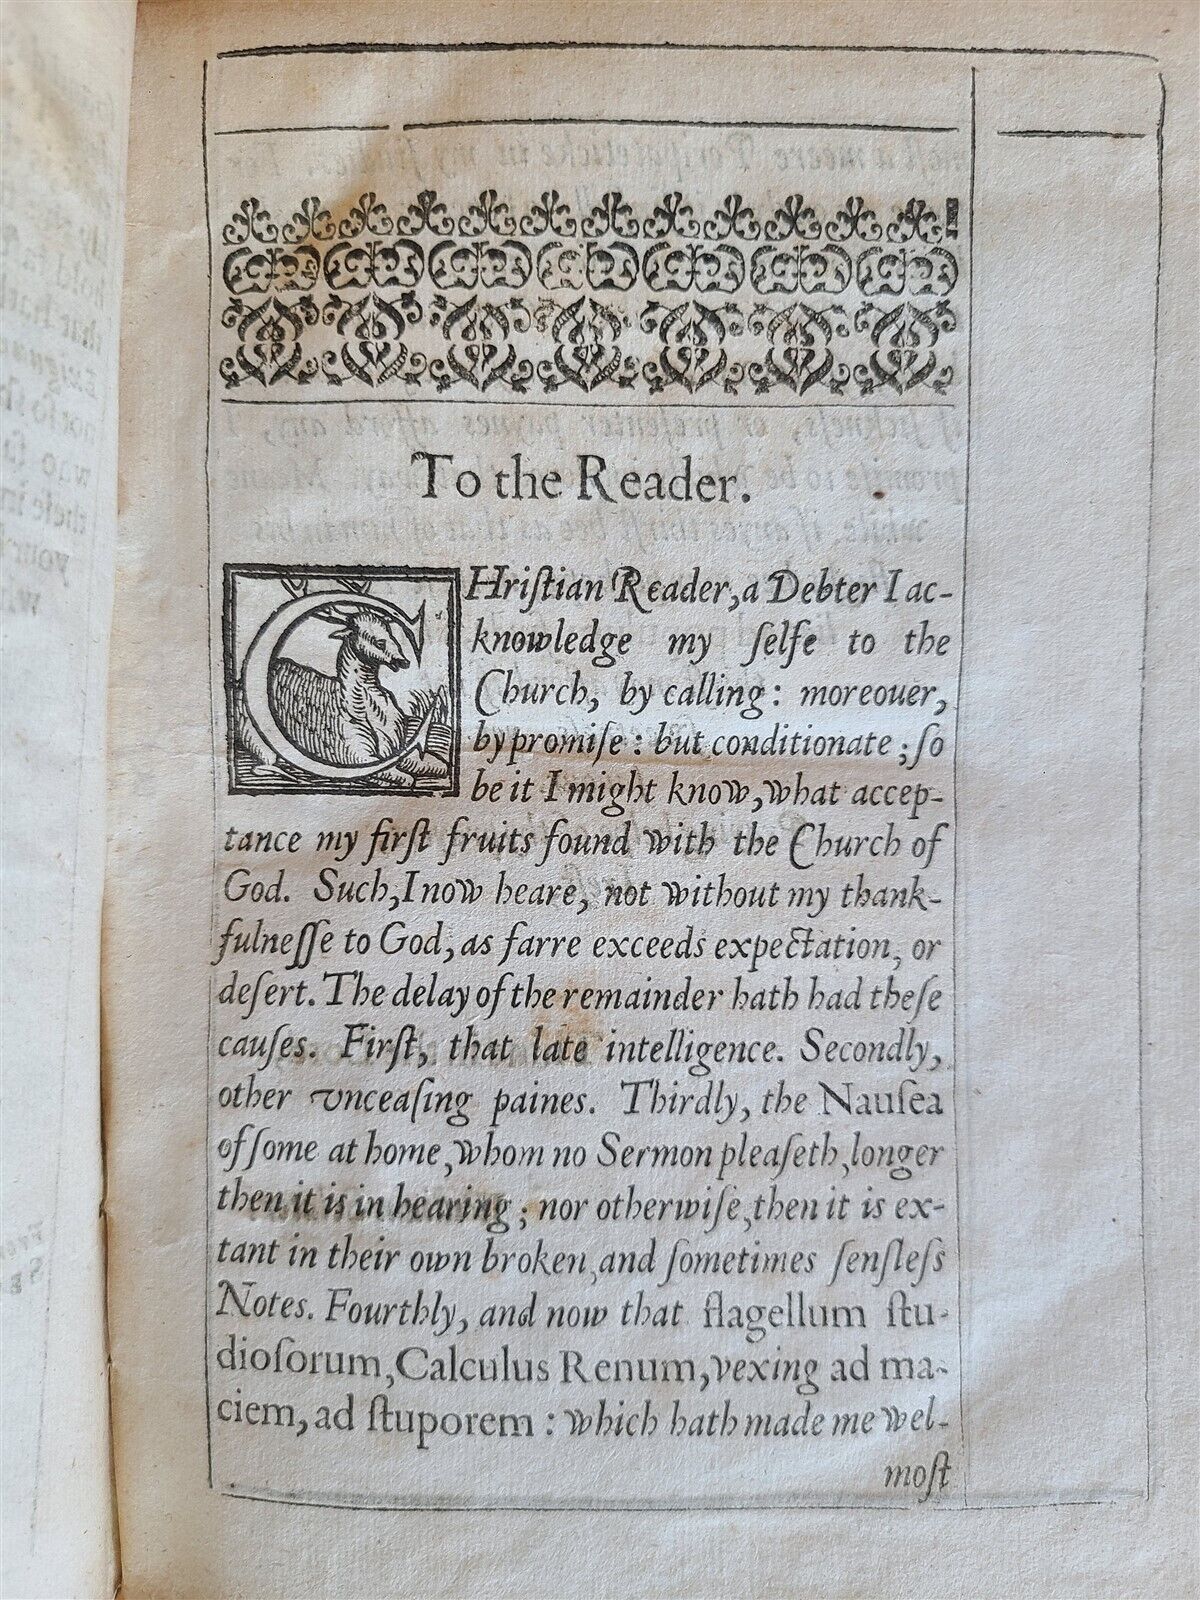 To the Reader.
CHriſtian Reader, a Debter I ac-
knowledge my ſelfe to the
Church, by calling: moreouer,
by promiſe: but conditionate; ſo
be it I might know, what accep-
tance my firſt fruits found with the Church of
God. Such, I now heare, not without my thank-
fulneſſe to God, as farre exceeds expectation, or
deſert. The delay of the remainder hath had theſe
cauſes. Firſt, that late intelligence. Secondly,
other vnceaſing paines. Thirdly, the Nauſea
of ſome at home, whom no Sermon pleaſeth, longer
then it is in hearing; nor otherwiſe, then it is ex-
tant in their own broken, and ſometimes ſenſleſs
Notes. Fourthly, and now that flagellum ſtu-
dioſorum, Calculus Renum, vexing ad ma-
ciem, ad ſtuporem: which hath made me wel-
moſt